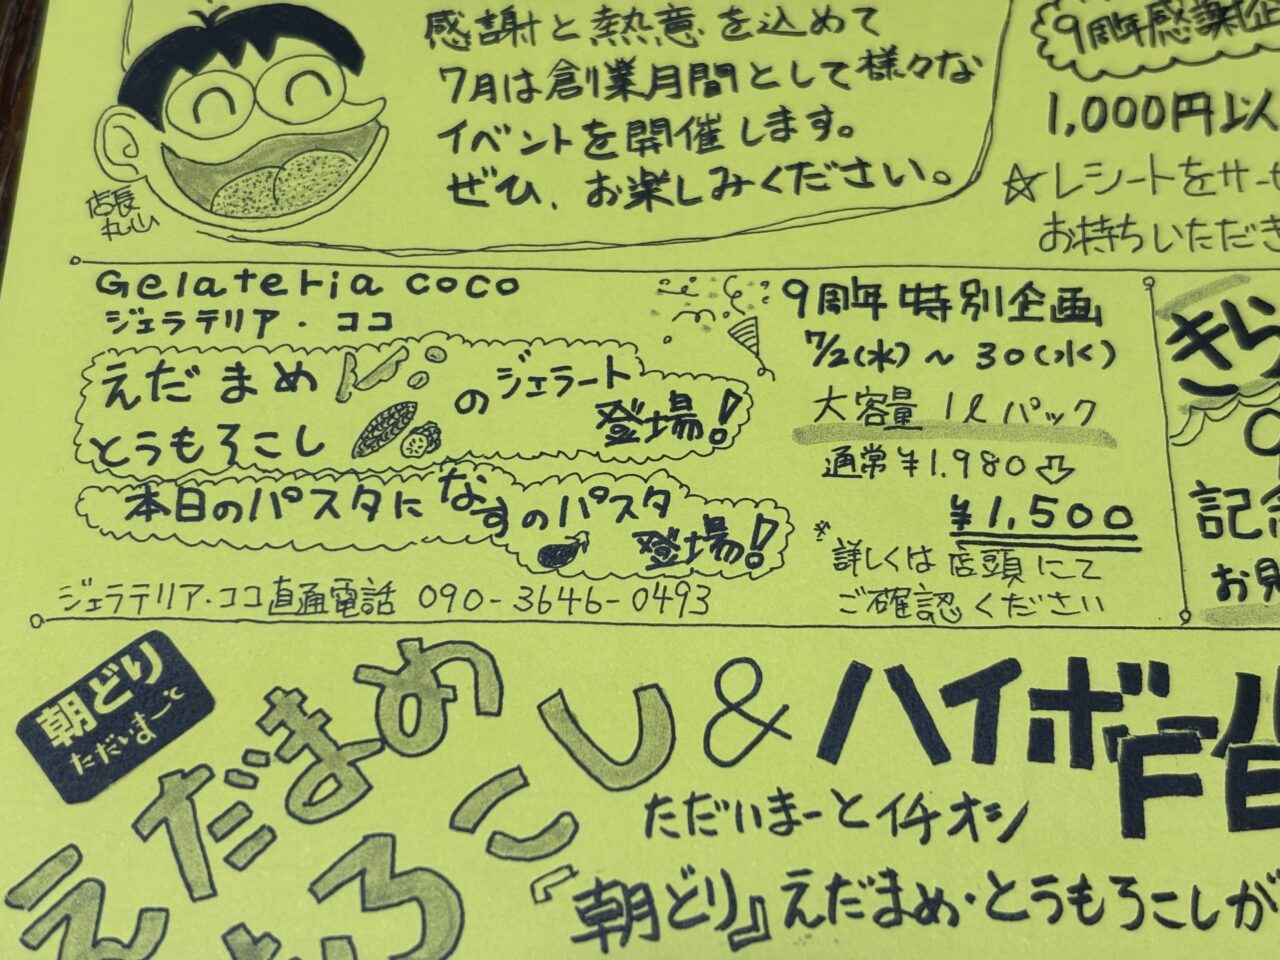 感謝と熱意を込めて
7月は創業月間として様々な
イベントを開催します。
ぜひ、お楽しみください。
店長
丸山
9周年感謝企
1,000円以
☆レシートをサーヒ
お持ちいただき
Gelateria coco
ジェラテリア・ココ
えだまめ
とうもろこし
のジェラート
登場!
本日のパスタになすのパスタ
登場!
ジェラテリア・ココ直通電話 090-3646-0493
9周年特別企画
7/2(水)~30(水)
大容量 1ℓパック
通常¥1.980⇩
¥1,500
*詳しくは店頭にて
ご確認ください
きら
記念
お見
朝どり
ただいまーと
えだまめ
もろこし&ハイボール
FE
ただいまーとイチオシ
『朝どり』えだまめ・とうもろこしが